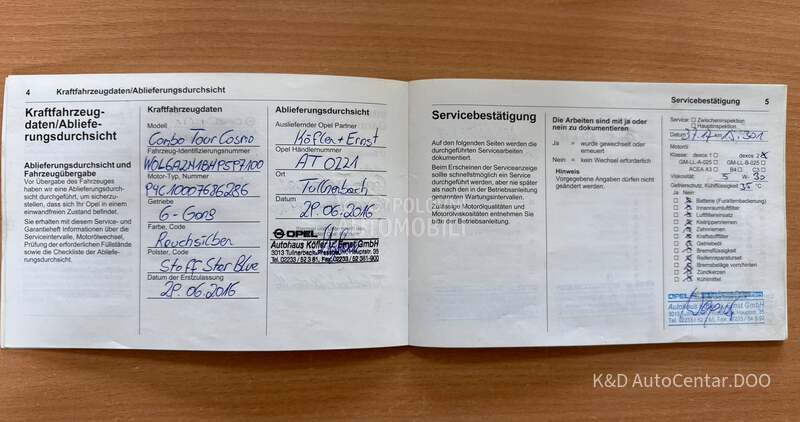 4 Kraftfahrzeugdaten/Ablieferungsdurchsicht
Kraftfahrzeug-
daten/Abliefe-
rungsdurchsicht
Ablieferungsdurchsicht und
Fahrzeugübergabe
Vor Übergabe des Fahrzeuges
haben wir eine Ablieferungsdurch-
sicht durchgeführt, um sicherzu-
stellen, dass sich Ihr Opel in einem
einwandfreien Zustand befindet.
Sie erhalten mit diesem Service- und
Garantieheft Informationen über die
Serviceintervalle, Motorölwechsel,
Prüfung der erforderlichen Füllstände
sowie die Checkliste der Abliefe-
rungsdurchsicht.
Kraftfahrzeugdaten
Modell
Combo Tour Cosmo
Fahrzeug-Identifizierungsnummer
Motor-Typ, Nummer
P4C10007686286
Getriebe
6-Gang
Farbe, Code
Rauchsilber
Polster, Code
Stoff Star Blue
Datum der Erstzulassung
29.06.2016
Ablieferungsdurchsicht
Ausliefernder Opel Partner
Köfler + Ernst
Opel Händlernummer
AT 0221
Ort
Tullnerbach
Datum
29.06.2016
OPEL
Autohaus Köfler
Ernst GmbH
Servicebestätigung 5
Servicebestätigung
Auf den folgenden Seiten werden die
durchgeführten Servicearbeiten
dokumentiert.
Beim Erscheinen der Serviceanzeige
sollte schnellstmöglich ein Service
durchgeführt werden, aber nie später
als nach den in der Betriebsanleitung
genannten Wartungsintervallen.
Zulässige Motorölqualitäten und
Motorölviskositäten entnehmen Sie
bitte der Betriebsanleitung.
Die Arbeiten sind mit ja oder
nein zu dokumentieren
Ja = wurde gewechselt oder
erneuert
Nein = kein Wechsel erforderlich
Hinweis
Vorgegebene Angaben dürfen nicht
geändert werden.
Service: Zwischeninspektion
Hauptinspektion
Datum
km
Motoröl
Klasse: dexos 1 dexos 2
GM-LL-A-025 GM-LL-B-025
ACEA A3 B4 C3
Viskosität 5 W 30
Gefrierschutz, Kühlflüssigkeit 35 °C
Ja Nein
Batterie (Funkfernbedienung)
Innenraumluftfilter
Luftfiltereinsatz
Keilrippenriemen
Zahnriemen
Kraftstofffilter
Getriebeöl
Bremsflüssigkeit
Reifenreparaturset
Bremsbeläge vorn/hinten
Zündkerzen
Kühlmittel
OPEL
Autohaus
Ernst GmbH
K&D AutoCentar.DOO